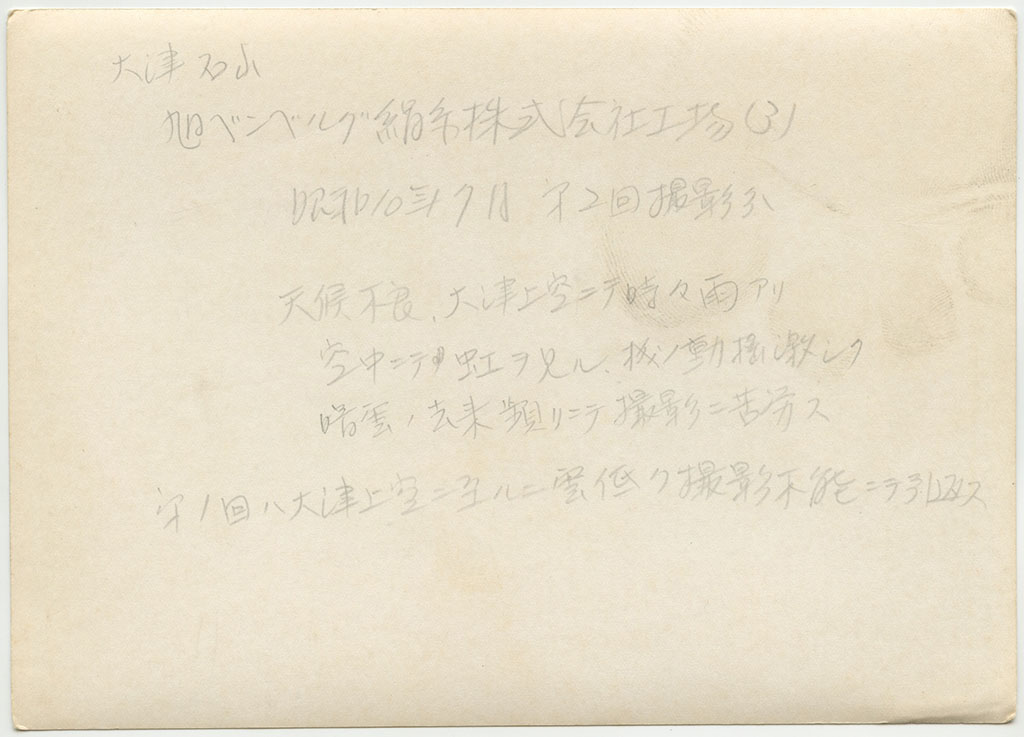 大津 石山
旭ベンベルグ絹糸株式会社工場(3)
昭和10年7月 第2回撮影
天候不良、大津上空ニテ時々雨アリ
空中ニテ虹ヲ見ル、機ノ動揺激シク
暗雲ノ去来頻リニテ撮影ニ苦労ス
第1回ハ大津上空ニ至ルニ雲低ク撮影不能ニテ引返ス